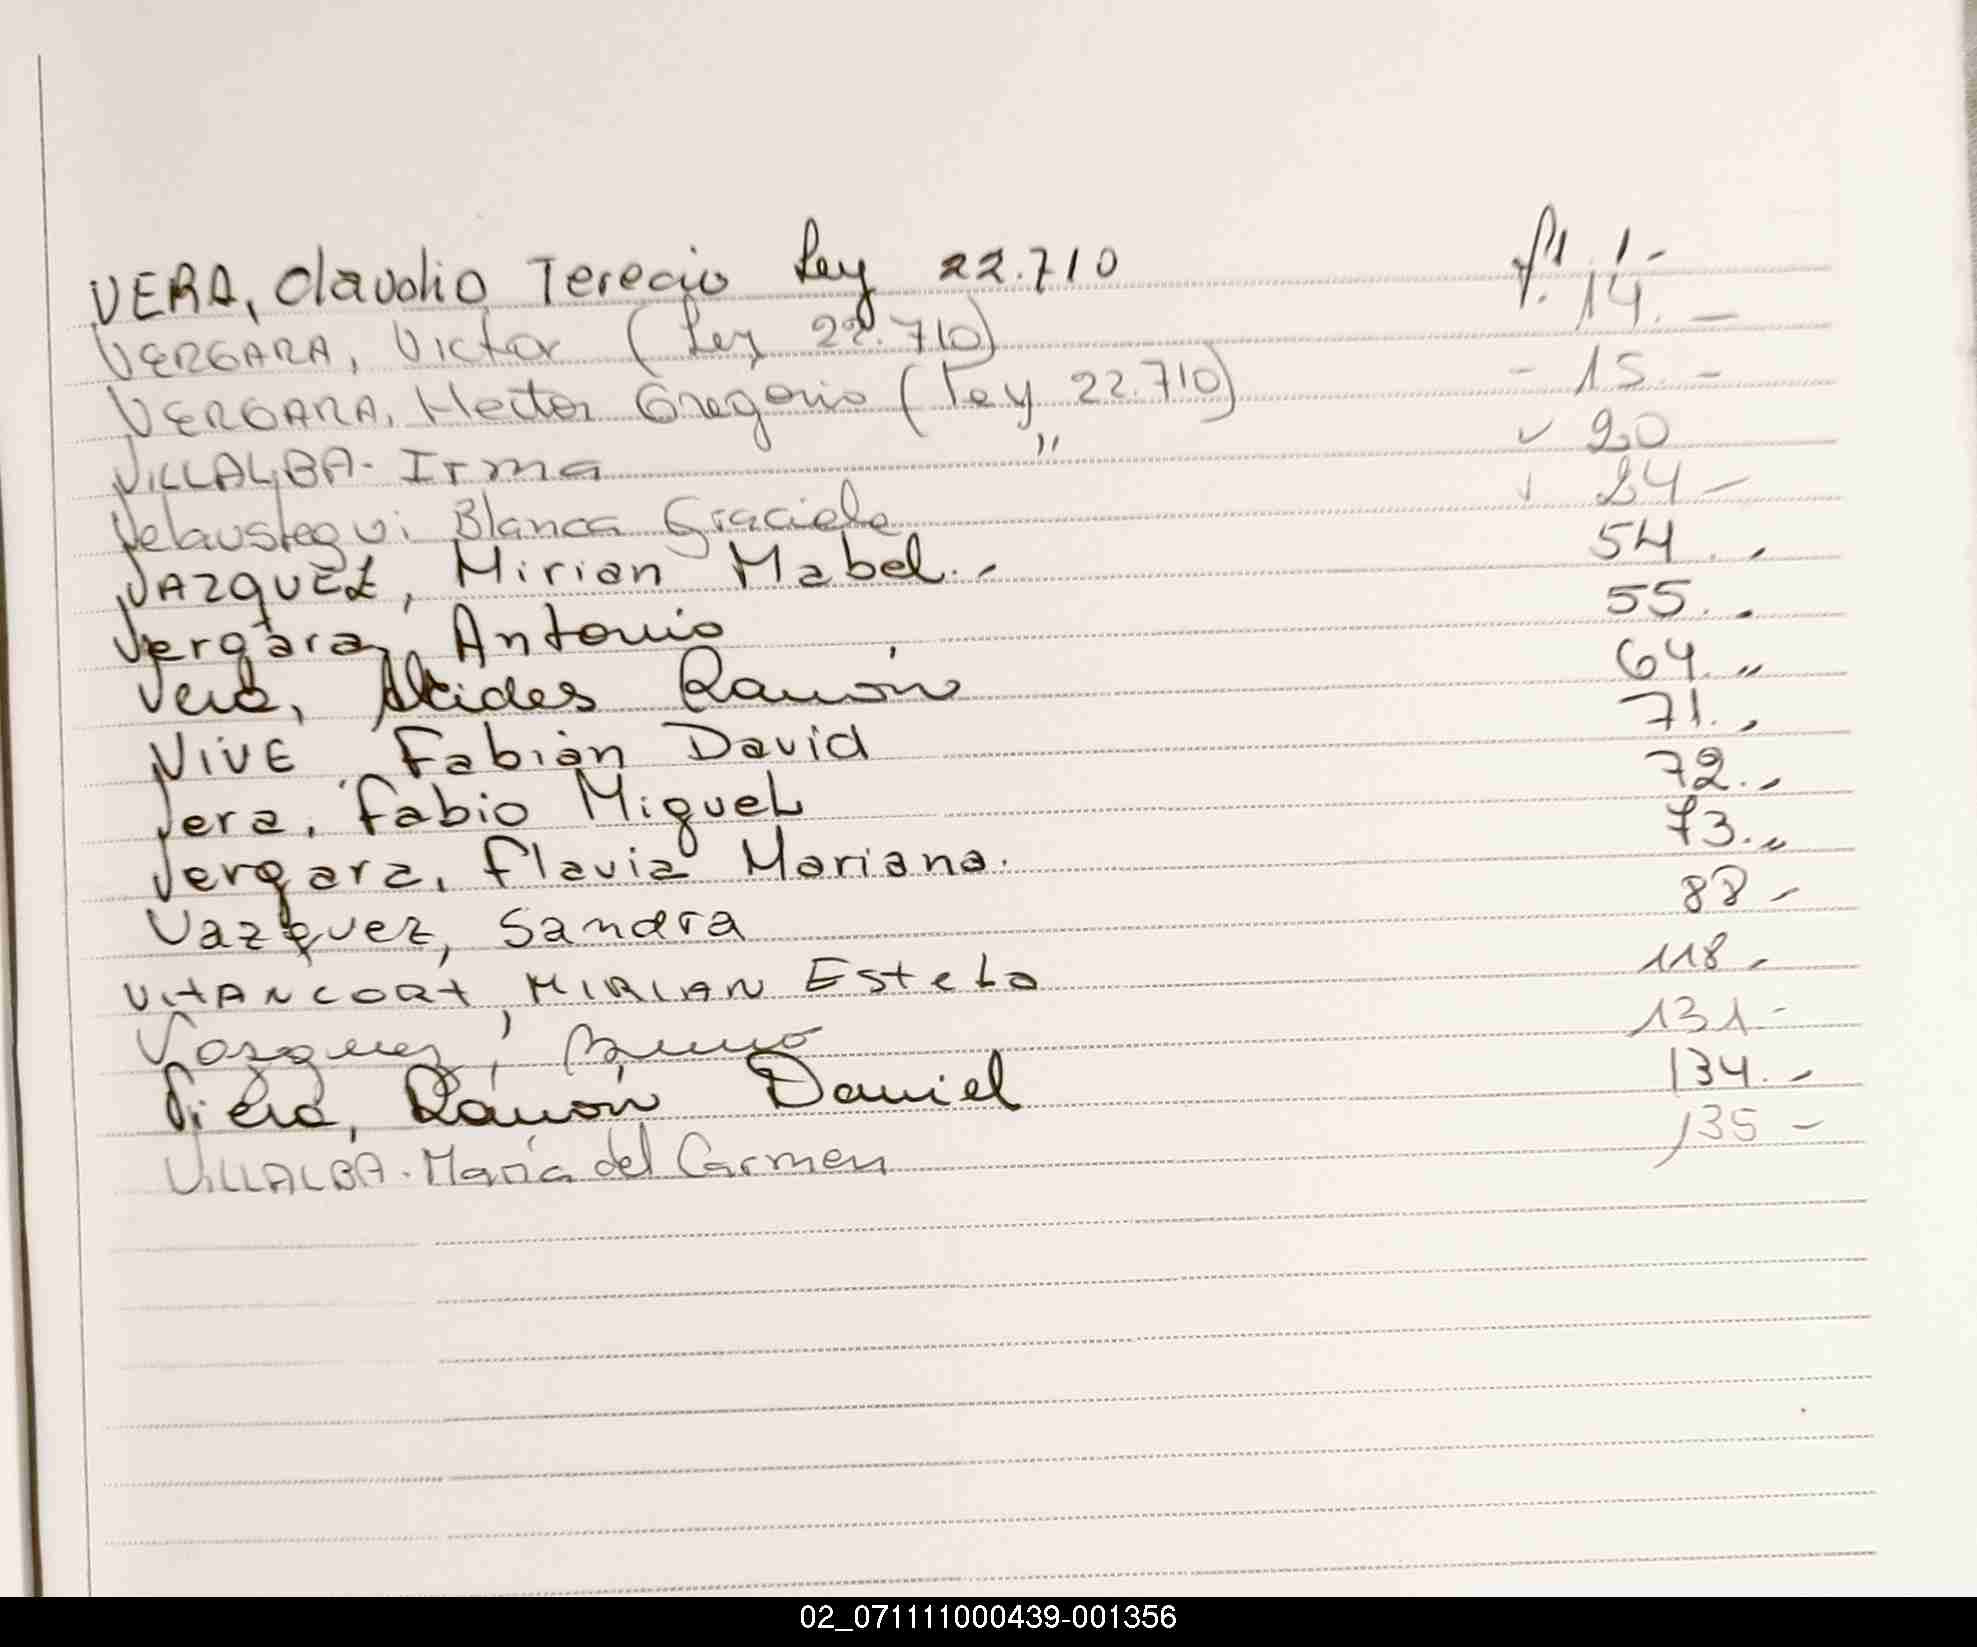 VERA, Claudio Terecio Ley 22.710 f. 1.-
VERGARA, Victor (Ley 22.710) 14. -
VERGARA, Hector Gregorio (Ley 22.710) - 15. -
VILLALBA - Irma " 20
Velaustegui Blanca Graciela 24 -
VAZQUEZ, Mirian Mabel.- 54.-
Vergara, Antonio 55.-
Vera, Alcides Ramón 64."
VIVE, Fabián David 71.-
Vera, Fabio Miguel 72.-
Vergara, Flavia Mariana. 73.-
Vazquez, Sandra 88 -
VITANCORT, MIRIAN Estela 118.-
Vazquez, 131-
Viera, Ramón Daniel 134.-
VILLALBA - María del Carmen 135 -
02_071111000439-001356